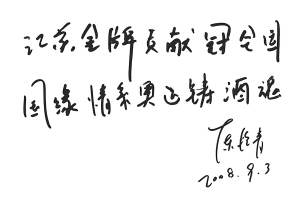 江苏金牌贡献冠全国
国缘情系奥运铸酒魂
2008.9.3